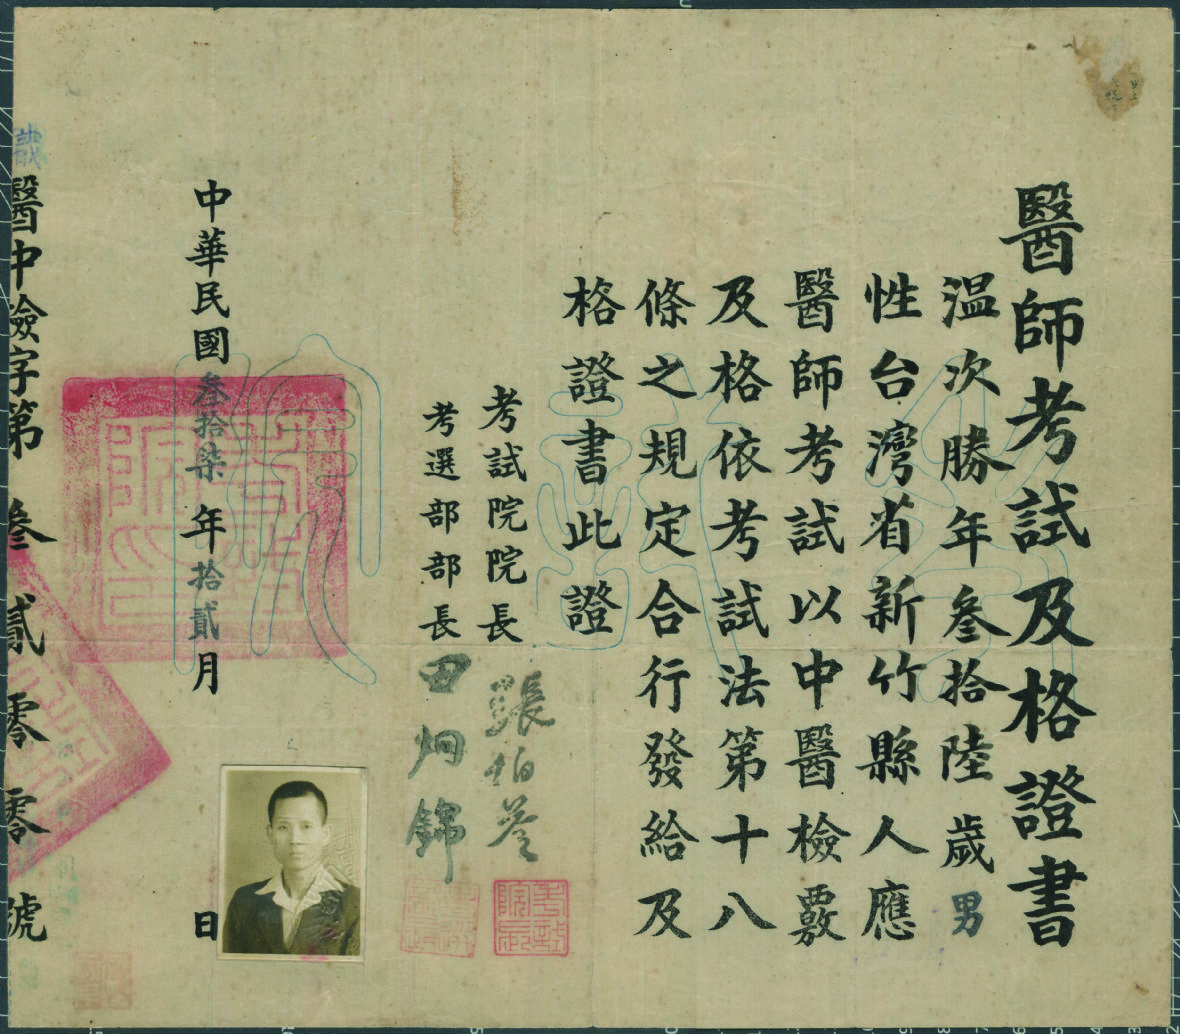 醫師考試及格證書
溫次勝年叁拾陸歲男
性台灣省新竹縣人應
醫師考試以中醫檢覈
及格依考試法第十八
條之規定合行發給及
格證書此證
考試院院長 張伯苓
考選部部長 田炯錦
中華民國叁拾柒年拾貳月 日
醫中檢字第叁貳零零號